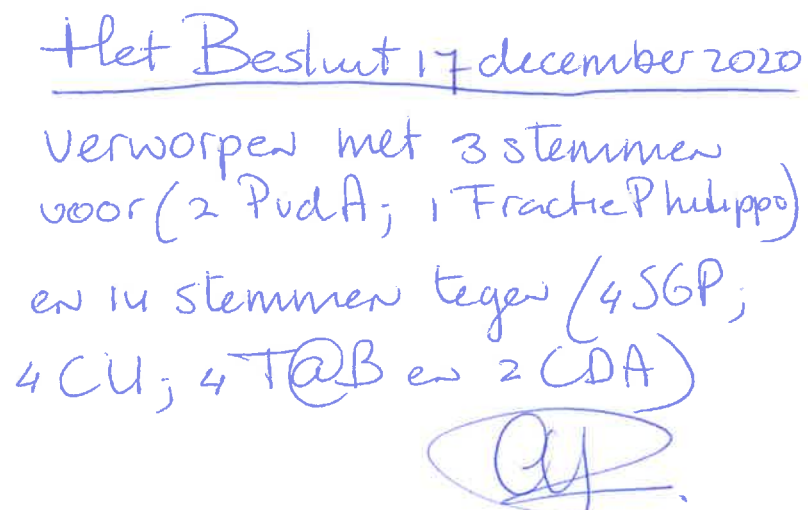 Het Besluit 17 december 2020
verworpen met 3 stemmen
voor (2 PvdA; 1 Fractie Philippo)
en 14 stemmen tegen (4 SGP;
4 CU; 4 T@B en 2 CDA)